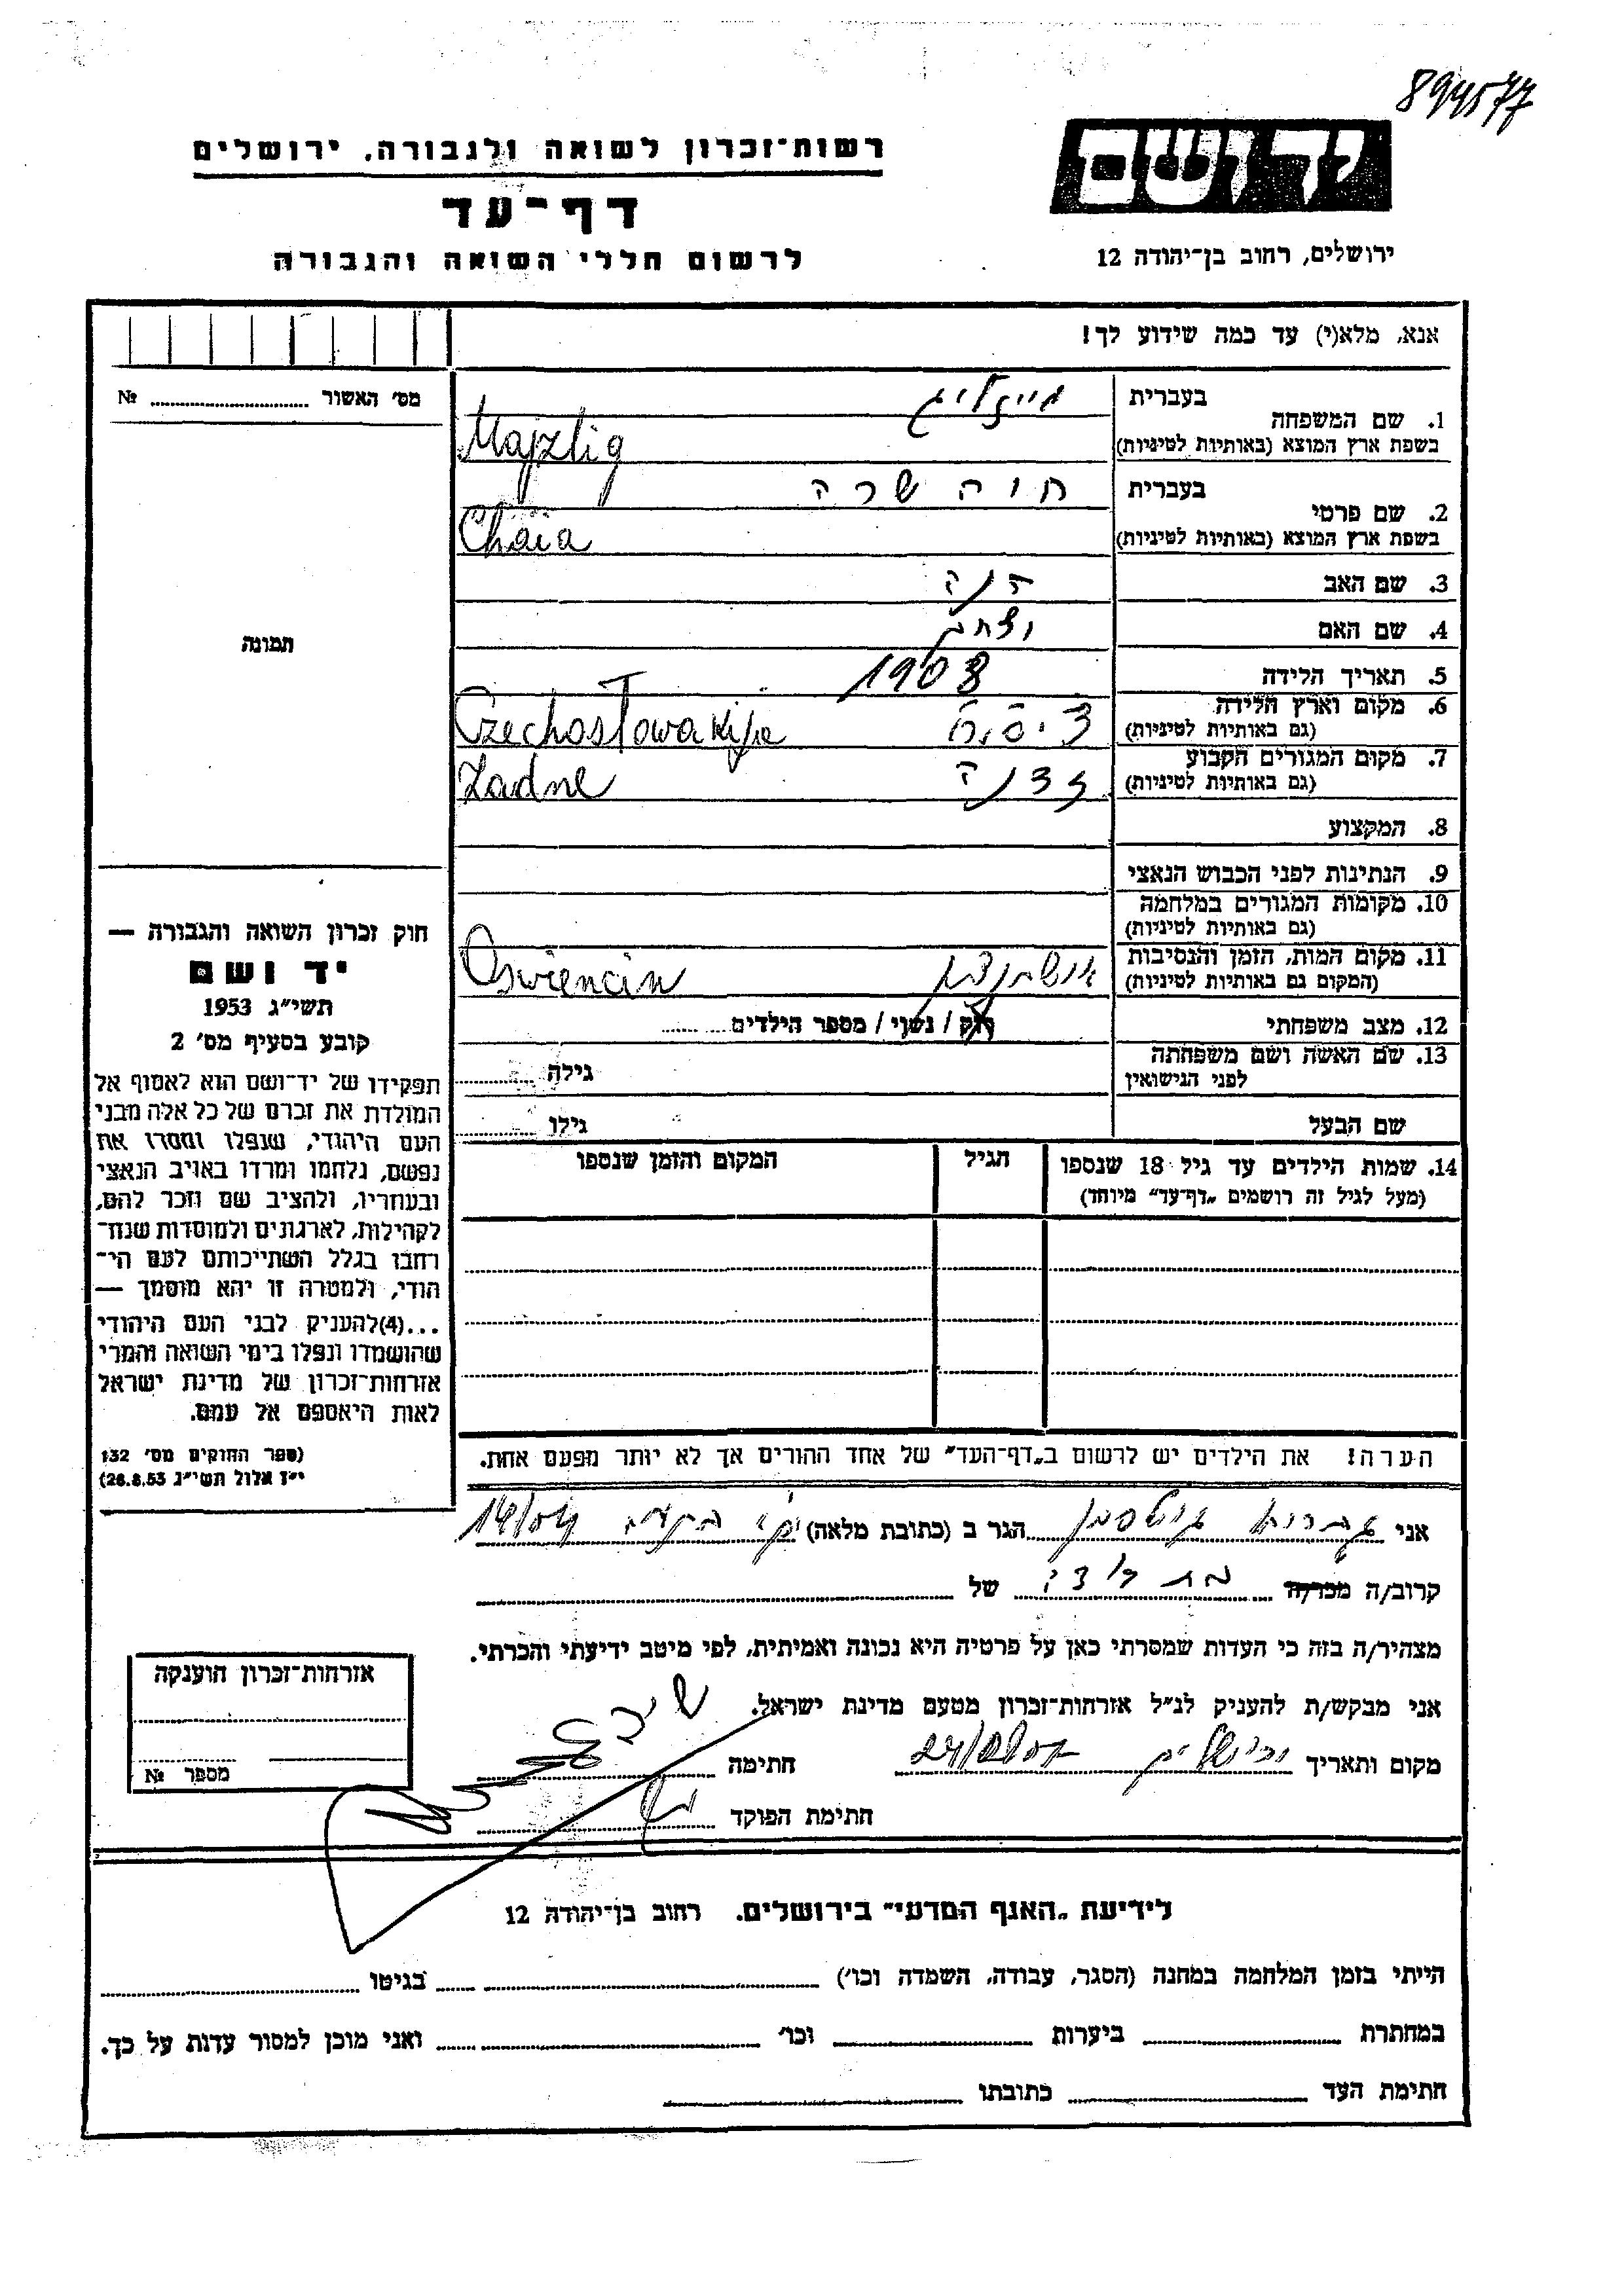 894577
יד ושם
ירושלים, רחוב בן־יהודה 12
רשות־זכרון לשואה ולגבורה, ירושלים
דף־עד
לרשום חללי השואה והגבורה
אנא, מלא(י) עד כמה שידוע לך!
מס׳ האשור № 
תמונה
1. שם המשפחה
בעברית מייזליג
בשפת ארץ המוצא (באותיות לטיניות) Majzlig
2. שם פרטי
בעברית חוה שרה
בשפת ארץ המוצא (באותיות לטיניות) Chaia
3. שם האב
4. שם האם
5. תאריך הלידה 1908
6. מקום וארץ הלידה
(גם באותיות לטיניות) Czechosłowakije
7. מקום המגורים הקבוע
(גם באותיות לטיניות) Zadne
8. המקצוע
9. הנתינות לפני הכבוש הנאצי
10. מקומות המגורים במלחמה
(גם באותיות לטיניות)
11. מקום המות, הזמן והנסיבות
(המקום גם באותיות לטיניות) Oswiencin
12. מצב משפחתי רוק / נשוי / מספר הילדים
13. שם האשה ושם משפחתה
לפני הנישואין גילה
שם הבעל גילו
14. שמות הילדים עד גיל 18 שנספו
(מעל לגיל זה רושמים „דף־עד״ מיוחד)
הגיל
המקום והזמן שנספו
הערה! את הילדים יש לרשום ב„דף־העד״ של אחד ההורים אך לא יותר מפעם אחת.
חוק זכרון השואה והגבורה —
יד ושם
תשי״ג 1953
קובע בסעיף מס׳ 2
תפקידו של יד־ושם הוא לאסוף אל
המולדת את זכרם של כל אלה מבני
העם היהודי, שנפלו ומסרו את
נפשם, נלחמו ומרדו באויב הנאצי
ובעוזריו, ולהציב שם וזכר להם,
לקהילות, לארגונים ולמוסדות שנח־
רבו בגלל השתייכותם לעם הי־
הודי, ולמטרה זו יהא מוסמך —
...(4)להעניק לבני העם היהודי
שהושמדו ונפלו בימי השואה והמרי
אזרחות־זכרון של מדינת ישראל
לאות היאספם אל עמם.
(ספר החוקים מס׳ 132
י״ז אלול תשי״ג 28.8.53)
אני הגר ב (כתובת מלאה)
קרוב/ה מכר/ה של
מצהיר/ה בזה כי העדות שמסרתי כאן על פרטיה היא נכונה ואמיתית, לפי מיטב ידיעתי והכרתי.
אני מבקש/ת להעניק לנ״ל אזרחות־זכרון מטעם מדינת ישראל.
מקום ותאריך ירושלים חתימה
חתימת הפוקד
אזרחות־זכרון הוענקה
מספר №
לידיעת „האגף המדעי״ בירושלים. רחוב בן־יהודה 12
הייתי בזמן המלחמה במחנה (הסגר, עבודה, השמדה וכו׳) בגיטו
במחתרת ביערות וכו׳ ואני מוכן למסור עדות על כך.
חתימת העד כתובתו